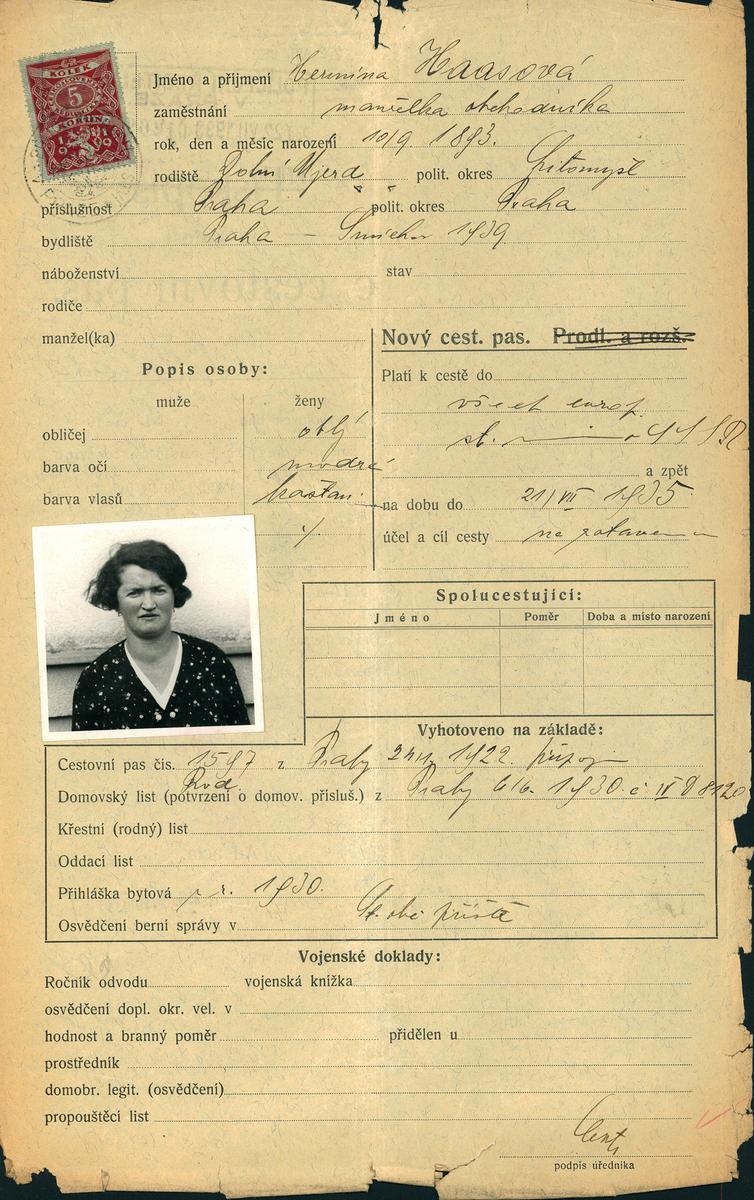 KOLEK
5
KORUN
1919
Jméno a příjmení Hermina Haasová
zaměstnání manželka obchodníka
rok, den a měsíc narození 10/9. 1893.
rodiště Dolní Újezd polit. okres Litomyšl
příslušnost Praha polit. okres Praha
bydliště Praha – Smíchov 1939
náboženství stav
rodiče
manžel(ka)
Nový cest. pas. Prodl. a rozš.
Popis osoby:
muže ženy
obličej oblý
barva očí modré
barva vlasů kaštan.
Platí k cestě do
všech europ.
st.
a zpět
na dobu do 21/VII 1935
účel a cíl cesty na zotavenou
Spolucestující:
Jméno Poměr Doba a místo narození
Vyhotoveno na základě:
Cestovní pas čís. 1597 z Prahy 1922.
Domovský list (potvrzení o domov. přísluš.) z Prahy 6/6. 1930. č. IV D 8120
Křestní (rodný) list
Oddací list
Přihláška bytová z r. 1930.
Osvědčení berní správy v
Vojenské doklady:
Ročník odvodu vojenská knížka
osvědčení dopl. okr. vel. v
hodnost a branný poměr přidělen u
prostředník
domobr. legit. (osvědčení)
propouštěcí list
podpis úředníka